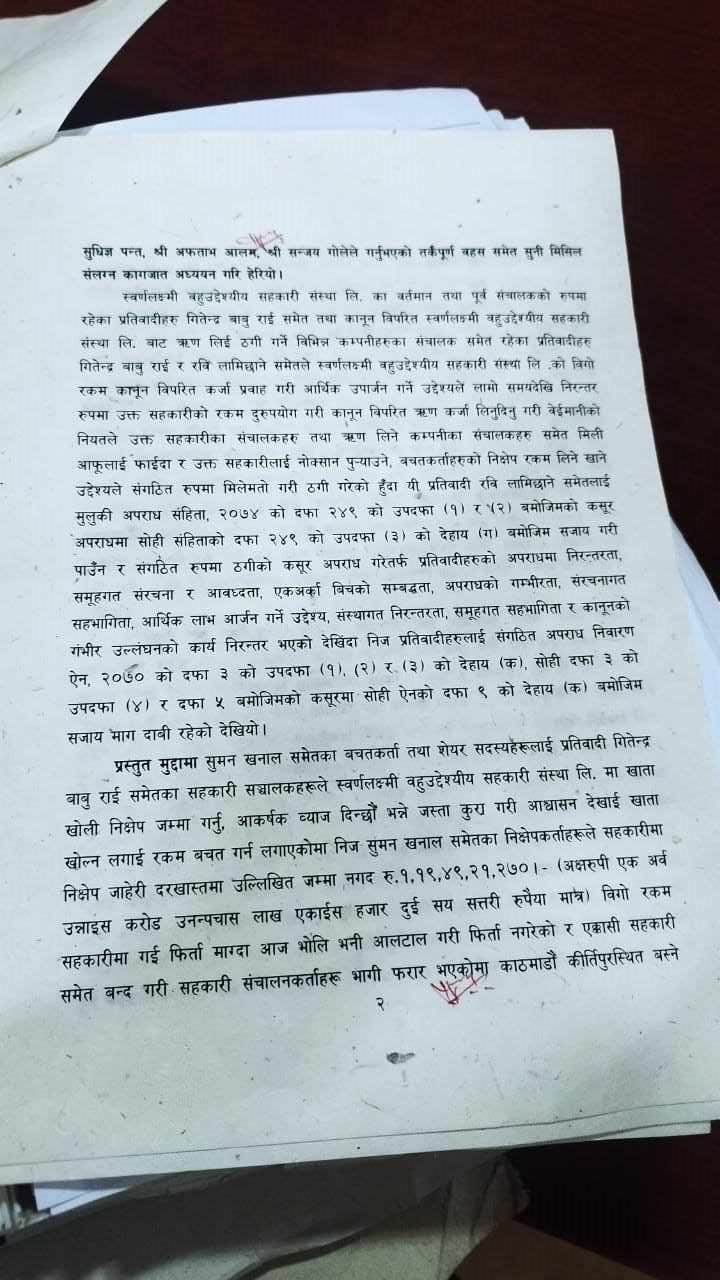 सुधिज्ञ पन्त, श्री अफताभ आलम, श्री सन्जय गोलेले गर्नुभएको तर्कपूर्ण वहस समेत सुनी मिसिल
संलग्न कागजात अध्ययन गरि हेरियो।
स्वर्णलक्ष्मी वहुउद्देश्यीय सहकारी संस्था लि. का वर्तमान तथा पूर्व संचालकको रुपमा
रहेका प्रतिवादीहरु गितेन्द्र बाबु राई समेत तथा कानून विपरित स्वर्णलक्ष्मी वहुउद्देश्यीय सहकारी
संस्था लि. बाट ऋण लिई ठगी गर्ने विभिन्न कम्पनीहरुका संचालक समेत रहेका प्रतिवादीहरु
गितेन्द्र बाबु राई र रवि लामिछाने समेतले स्वर्णलक्ष्मी वहुउद्देश्यीय सहकारी संस्था लि .को विगो
रकम कानून विपरित कर्जा प्रवाह गरी आर्थिक उपार्जन गर्ने उद्देश्यले लामो समयदेखि निरन्तर
रुपमा उक्त सहकारीको रकम दुरुपयोग गरी कानून विपरित ऋण कर्जा लिनुदिनु गरी वेईमानीको
नियतले उक्त सहकारीका संचालकहरु तथा ऋण लिने कम्पनीका संचालकहरु समेत मिली
आफूलाई फाईदा र उक्त सहकारीलाई नोक्सान पुऱ्याउने, बचतकर्ताहरुको निक्षेप रकम लिने खाने
उद्देश्यले संगठित रुपमा मिलेमतो गरी ठगी गरेको हुँदा यी प्रतिवादी रवि लामिछाने समेतलाई
मुलुकी अपराध संहिता, २०७४ को दफा २४९ को उपदफा (१) र (२) बमोजिमको कसूर
अपराधमा सोही संहिताको दफा २४९ को उपदफा (३) को देहाय (ग) बमोजिम सजाय गरी
पाउँन र संगठित रुपमा ठगीको कसूर अपराध गरेतर्फ प्रतिवादीहरुको अपराधमा निरन्तरता,
समूहगत संरचना र आवध्दता, एकअर्का बिचको सम्बद्धता, अपराधको गम्भीरता, संरचनागत
सहभागिता, आर्थिक लाभ आर्जन गर्ने उद्देश्य, संस्थागत निरन्तरता, समूहगत सहभागिता र कानूनको
गंभीर उल्लंघनको कार्य निरन्तर भएको देखिदा निज प्रतिवादीहरुलाई संगठित अपराध निवारण
ऐन, २०७० को दफा ३ को उपदफा (१), (२) र (३) को देहाय (क), सोही दफा ३ को
उपदफा (४) र दफा ५ बमोजिमको कसूरमा सोही ऐनको दफा ९ को देहाय (क) बमोजिम
सजाय माग दावी रहेको देखियो।
प्रस्तुत मुद्दामा सुमन खनाल समेतका बचतकर्ता तथा शेयर सदस्यहरूलाई प्रतिवादी गितेन्द्र
बाबु राई समेतका सहकारी सञ्चालकहरूले स्वर्णलक्ष्मी वहुउद्देश्यीय सहकारी संस्था लि. मा खाता
खोली निक्षेप जम्मा गर्नु, आकर्षक व्याज दिन्छौं भन्ने जस्ता कुरा गरी आश्वासन देखाई खाता
खोल्न लगाई रकम बचत गर्न लगाएकोमा निज सुमन खनाल समेतका निक्षेपकर्ताहरूले सहकारीमा
निक्षेप जाहेरी दरखास्तमा उल्लिखित जम्मा नगद रु.१,१९,४९,२१,२७०।- (अक्षरुपी एक अर्व
उन्नाइस करोड उनन्पचास लाख एकाईस हजार दुई सय सत्तरी रुपैया मात्र) विगो रकम
सहकारीमा गई फिर्ता माग्दा आज भोलि भनी आलटाल गरी फिर्ता नगरेको र एक्कासी सहकारी
समेत बन्द गरी सहकारी संचालनकर्ताहरू भागी फरार भएकोमा काठमाडौं कीर्तिपुरस्थित बस्ने
२